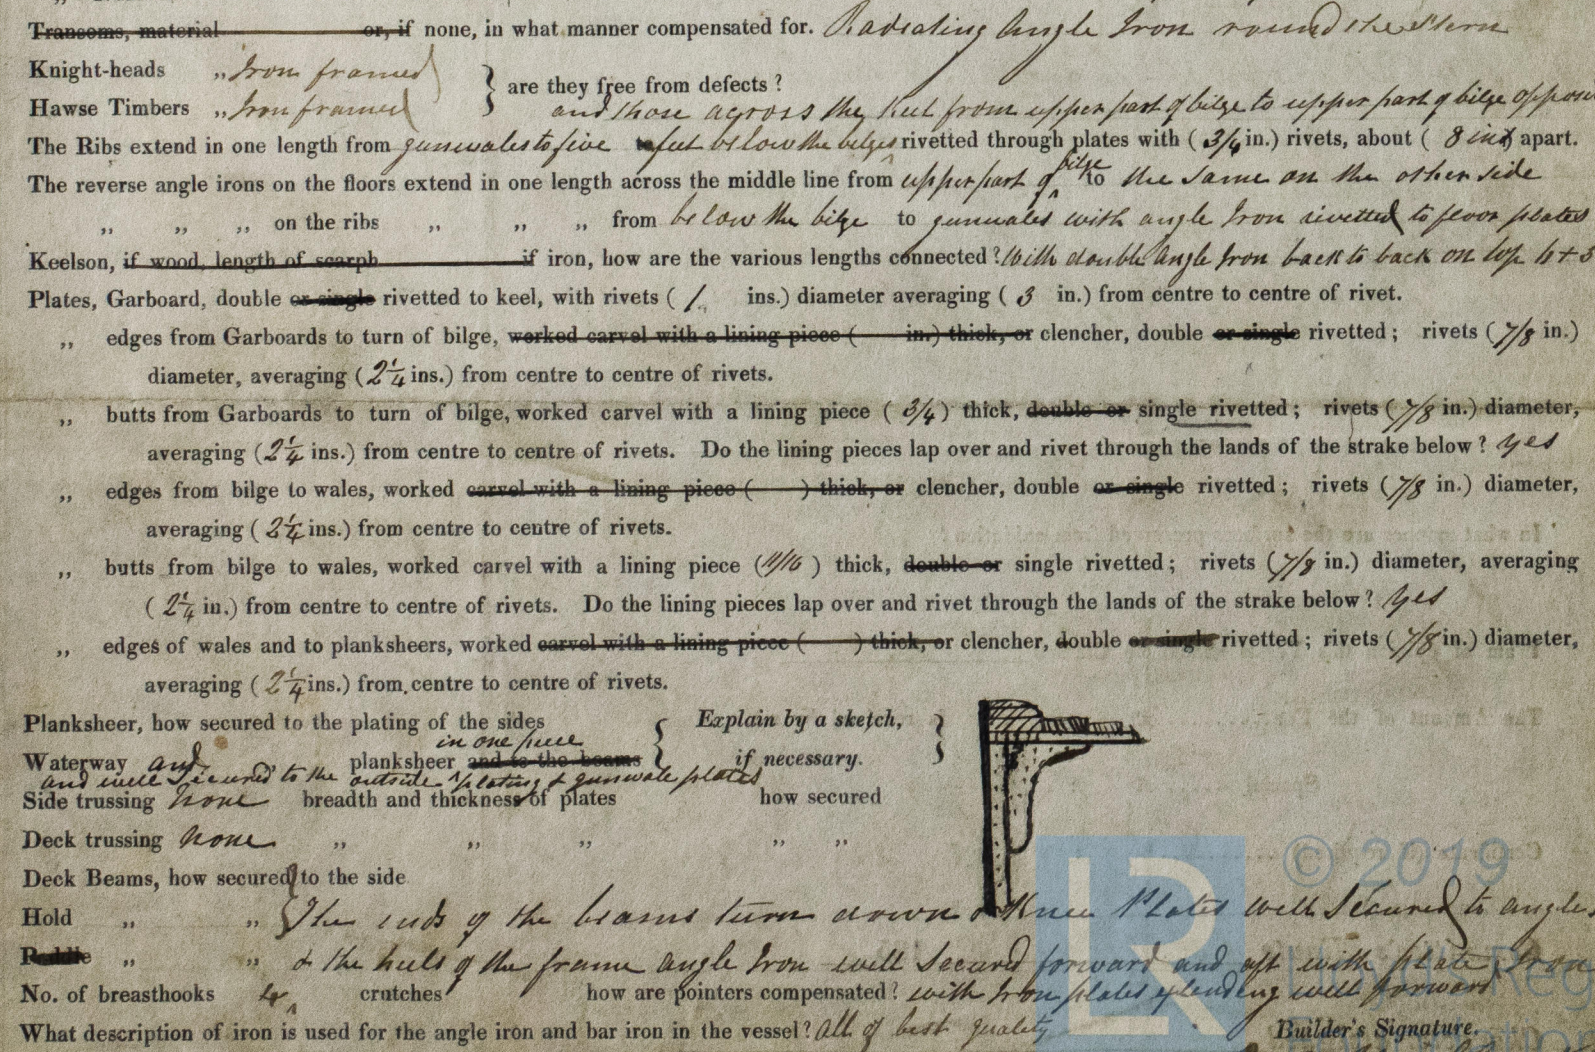 Transoms, material or, if none, in what manner compensated for. Radiating Angle Iron round the Stern
Knight-heads „ Iron framed
are they free from defects?
Hawse Timbers „ Iron framed and those across the keel from upper part of bilge to upper part of bilge oppos
The Ribs extend in one length from gunwales to five feet below the bilges rivetted through plates with ( 3/4 in.) rivets, about ( 8 ins) apart.
The reverse angle irons on the floors extend in one length across the middle line from upper part of bilge to the same on the other side
„ „ „ on the ribs „ „ „ from below the bilge to gunwales with angle Iron rivetted to floor plates
Keelson, if wood, length of scarph if iron, how are the various lengths connected? With double Angle Iron back to back on top
Plates, Garboard, double or single rivetted to keel, with rivets ( 1. ins.) diameter averaging ( 3 in.) from centre to centre of rivet.
„ edges from Garboards to turn of bilge, worked carvel with a lining piece ( in.) thick, or clencher, double or single rivetted; rivets ( 7/8 in.)
diameter, averaging ( 2 1/4 ins.) from centre to centre of rivets.
„ butts from Garboards to turn of bilge, worked carvel with a lining piece ( 3/4 ) thick, double or single rivetted; rivets ( 7/8 in.) diameter,
averaging ( 2 1/4 ins.) from centre to centre of rivets. Do the lining pieces lap over and rivet through the lands of the strake below? yes
„ edges from bilge to wales, worked carvel with a lining piece ( ) thick, or clencher, double or single rivetted; rivets ( 7/8 in.) diameter,
averaging ( 2 1/4 ins.) from centre to centre of rivets.
„ butts from bilge to wales, worked carvel with a lining piece ( 11/16 ) thick, double or single rivetted; rivets ( 7/8 in.) diameter, averaging
( 2 1/4 in.) from centre to centre of rivets. Do the lining pieces lap over and rivet through the lands of the strake below? yes
„ edges of wales and to planksheers, worked carvel with a lining piece ( ) thick, or clencher, double or single rivetted; rivets ( 7/8 in.) diameter,
averaging ( 2 1/4 ins.) from centre to centre of rivets.
Planksheer, how secured to the plating of the sides Explain by a sketch,
in one piece
Waterway and planksheer and to the beams if necessary.
and well Secured to the outside plating & gunwale plates
Side trussing none breadth and thickness of plates how secured
Deck trussing none „ „ „ „ „
© 2019
Deck Beams, how secured to the side
Hold „ „ The ends of the beams turn down & Knee Plates well Secured to angle
Paddle „ „ & the heels of the frame angle Iron well Secured forward and aft with plate Iron
LR
No. of breasthooks 4 crutches how are pointers compensated? with Iron plates extending well forward
What description of iron is used for the angle iron and bar iron in the vessel? All of best quality
Builder's Signature.